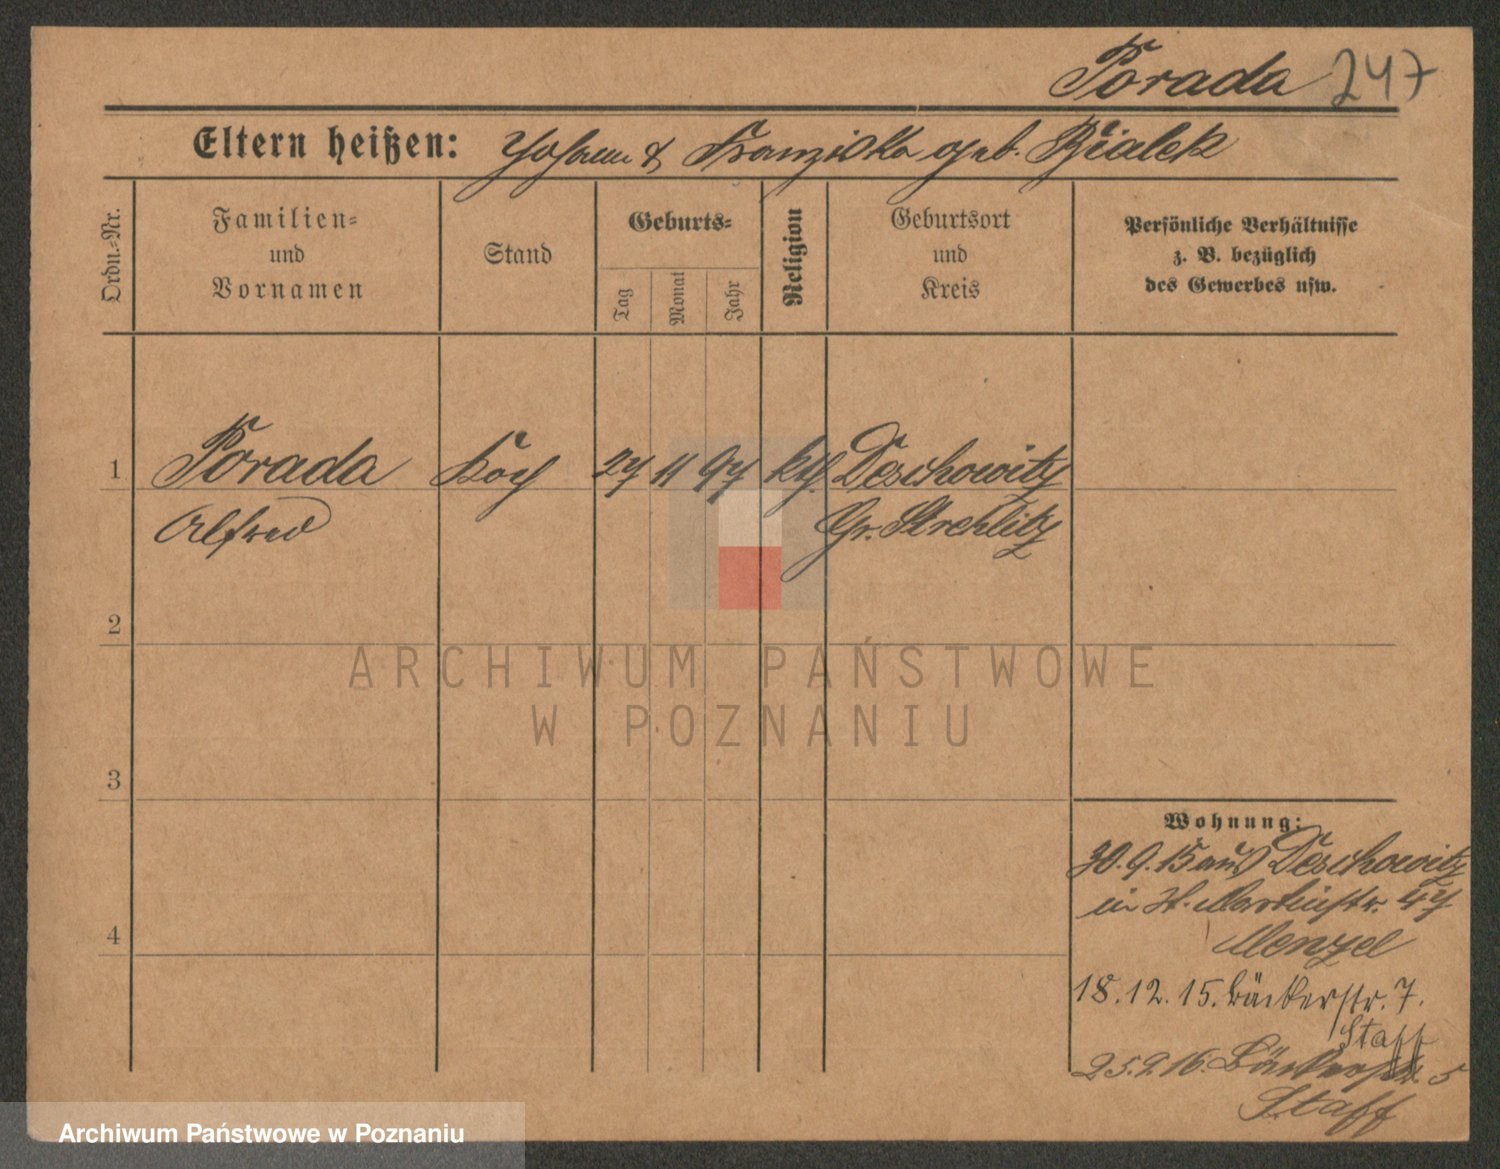 Porada 247
Eltern heißen: Johann & Franziska geb. Bialek
Ordn.-Nr.
Familien-
und
Vornamen
Stand
Geburts-
Tag
Monat
Jahr
Religion
Geburtsort
und
Kreis
Persönliche Verhältnisse
z. B. bezüglich
des Gewerbes usw.
1 Porada Koch 27 11 97 kth. Deschowitz
Alfred Gr. Strehlitz
2
ARCHIWUM PAŃSTWOWE
W POZNANIU
3
Wohnung:
30.9.15 aus Deschowitz
in St. Martinstr. 47
4
Menzel
18.12.15. Bäckerstr. 7.
Staff
25.2.16. Bäckerstr. 5
Staff
Archiwum Państwowe w Poznaniu